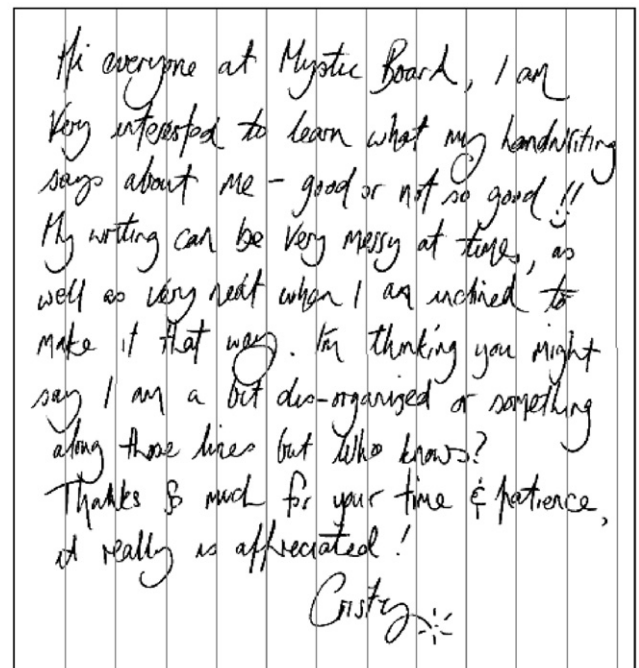 Hi everyone at Mystic Board, I am
Very interested to learn what my handwriting
says about me - good or not so good !!
My writting can be very messy at times, as
well as very neat when I am inclined to
make it that way. I'm thinking you might
say I am a bit dis-organised or something
along those lines but who knows?
Thanks so much for your time & patience,
it really is appreciated!
Cristy